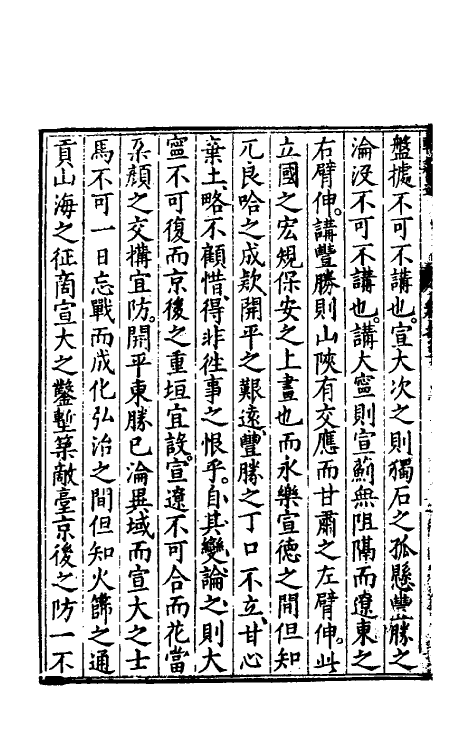 盤據不可不講也。宣大次之則獨石之孤懸豐勝之
淪沒不可不講也。講大寧則宣薊無阻隔而遼東之
右臂伸。講豐勝則山陝有交應而甘肅之左臂伸。此
立國之宏規保安之上畫也而永樂宣德之間但知
兀良哈之成欵開平之艱遠豐勝之丁口不立甘心
棄土略不顧惜得非徃事之恨乎。自其變論之則大
寧不可復而京後之重垣宜設。宣遼不可合而花當
朶顏之交搆宜防。開平東勝已淪異域而宣大之士
馬不可一日忘戰而成化弘治之間但知火篩之通
貢山海之征商宣大之鑿塹築敵臺京後之防一不